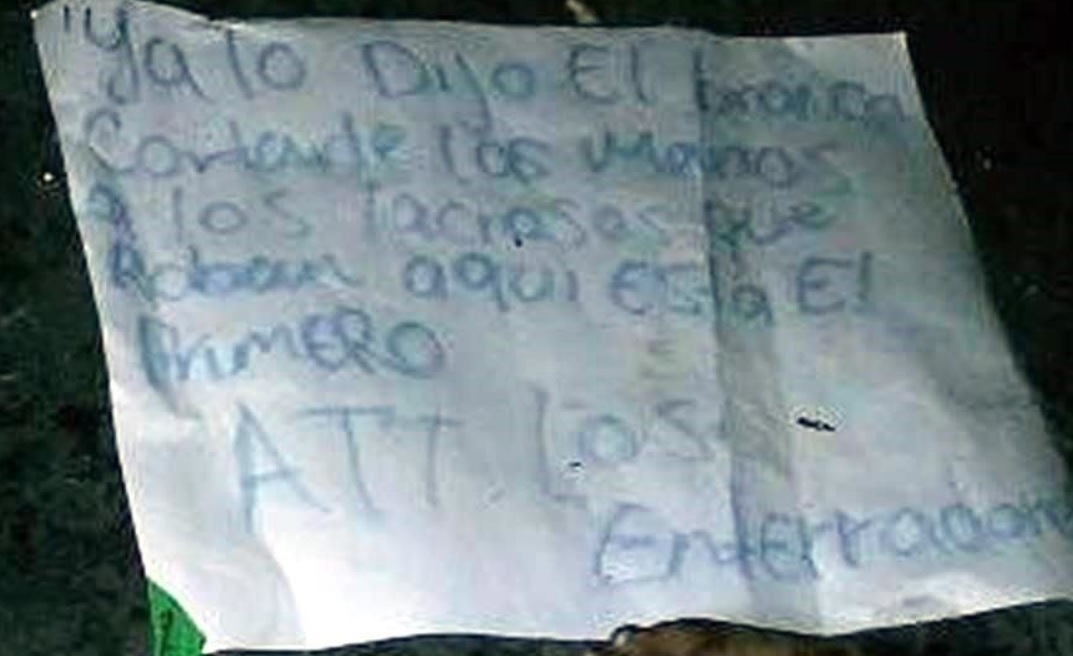 "Ya lo Dijo El bronco
Cortarle las manos
a los lacrosas que
Roban aqui Esta El
PrimERO
ATT Los
EntErrador